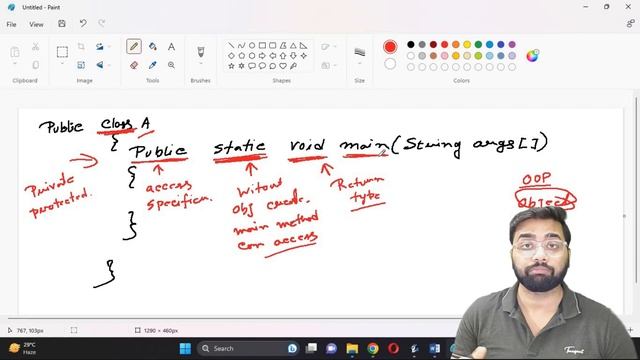 Untitled - Paint
File Edit View
Clipboard
Image
Tools
Brushes
Shapes
Size
Colors
Public class A
{
Public static void main(String args[])
{
Private
protected.
access
specifier.
Witout
obj create.
main method
can access
Return
type
OOP
Object
}
}
767, 103px
1290 × 460px
100%
29°C
Haze
Search